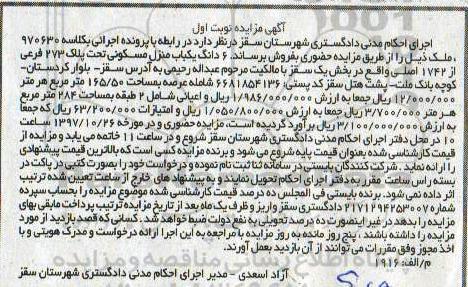 آگهی مزایده نوبت اول
اجرای احکام مدنی دادگستری شهرستان سقز درنظر دارد در رابطه با پرونده اجرائی بکلاسه ۹۷۰۶۳۰
، ملک ذیل را از طریق مزایده حضوری بفروش برساند. ۶ دانگ یکباب منزل مسکونی تحت پلاک ۲۷۳ فرعی
از ۱۷۴۲ اصلی واقع در بخش یک سقز با مالکیت مرحوم عبداله رحیمی به آدرس سقز- بلوار کردستان-
کوچه بانک ملت- پشت هتل سقز کد پستی: ۶۶۸۱۸۵۴۱۳۶ شامله عرصه بمساحت ۱۶۵/۵۰ متر مربع هر متر
۱۲/۰۰۰/۰۰۰ ریال جمعا به ارزش ۱/۹۸۶/۰۰۰/۰۰۰ ریال و اعیانی شامل ۲ طبقه بمساحت ۲۸۴ متر مربع
هر متر ۳/۷۰۰/۰۰۰ ریال جمعا به ارزش ۱/۰۵۰/۸۰۰/۰۰۰ ریال و امتیازات ۶۳/۲۰۰/۰۰۰ ریال که جمعا
به ارزش ۳/۱۰۰/۰۰۰/۰۰۰ ریال برآورد گردیده است. مزایده حضوری و در مورخه ۱۳۹۷/۱۰/۲۶ ساعت
۱۰ در محل دفتر اجرای احکام مدنی دادگستری شهرستان سقز شروع و در ساعت ۱۱ خاتمه می یابد و مزایده از
قیمت کارشناسی شده بعنوان قیمت پایه شروع می شود و برنده مزایده کسی است که بالاترین قیمت پیشنهادی
را ارائه نماید. شرکت کنندگان بایستی در سامانه ثنا ثبت نام نموده و درخواست خود را بصورت کتبی در پاکت در
بسته راس ساعت مقرر به دفتر اجرای احکام تحویل نمایند و به پیشنهاد های خارج از ساعت تعیین شده ترتیب
اثر داده نمی شود. برنده بایستی فی المجلس ده درصد قیمت کارشناسی شده موضوع مزایده را بحساب سپرده
شماره ۲۱۷۱۲۹۴۲۵۳۰۰۷ دادگستری سقز واریز و ظرف یک ماه بعد از تاریخ مزایده ترتیب پرداخت مابقی بهای
مزایده را بدهد در غیر اینصورت ده درصد تحویلی به نفع دولت ضبط خواهد شد. کسانی که قصد بازدید از مورد
مزایده را داشته باشند، پنج روز مانده به روز مزایده با مراجعه به این اجرا ارائه درخواست و مدرک هویتی و با
اخذ مجوز وفق مقررات می توانند از آن بازدید بعمل آورند.
م/الف: ۱۹۱۶
آزاد اسعدی - مدیر اجرای احکام مدنی دادگستری شهرستان سقز